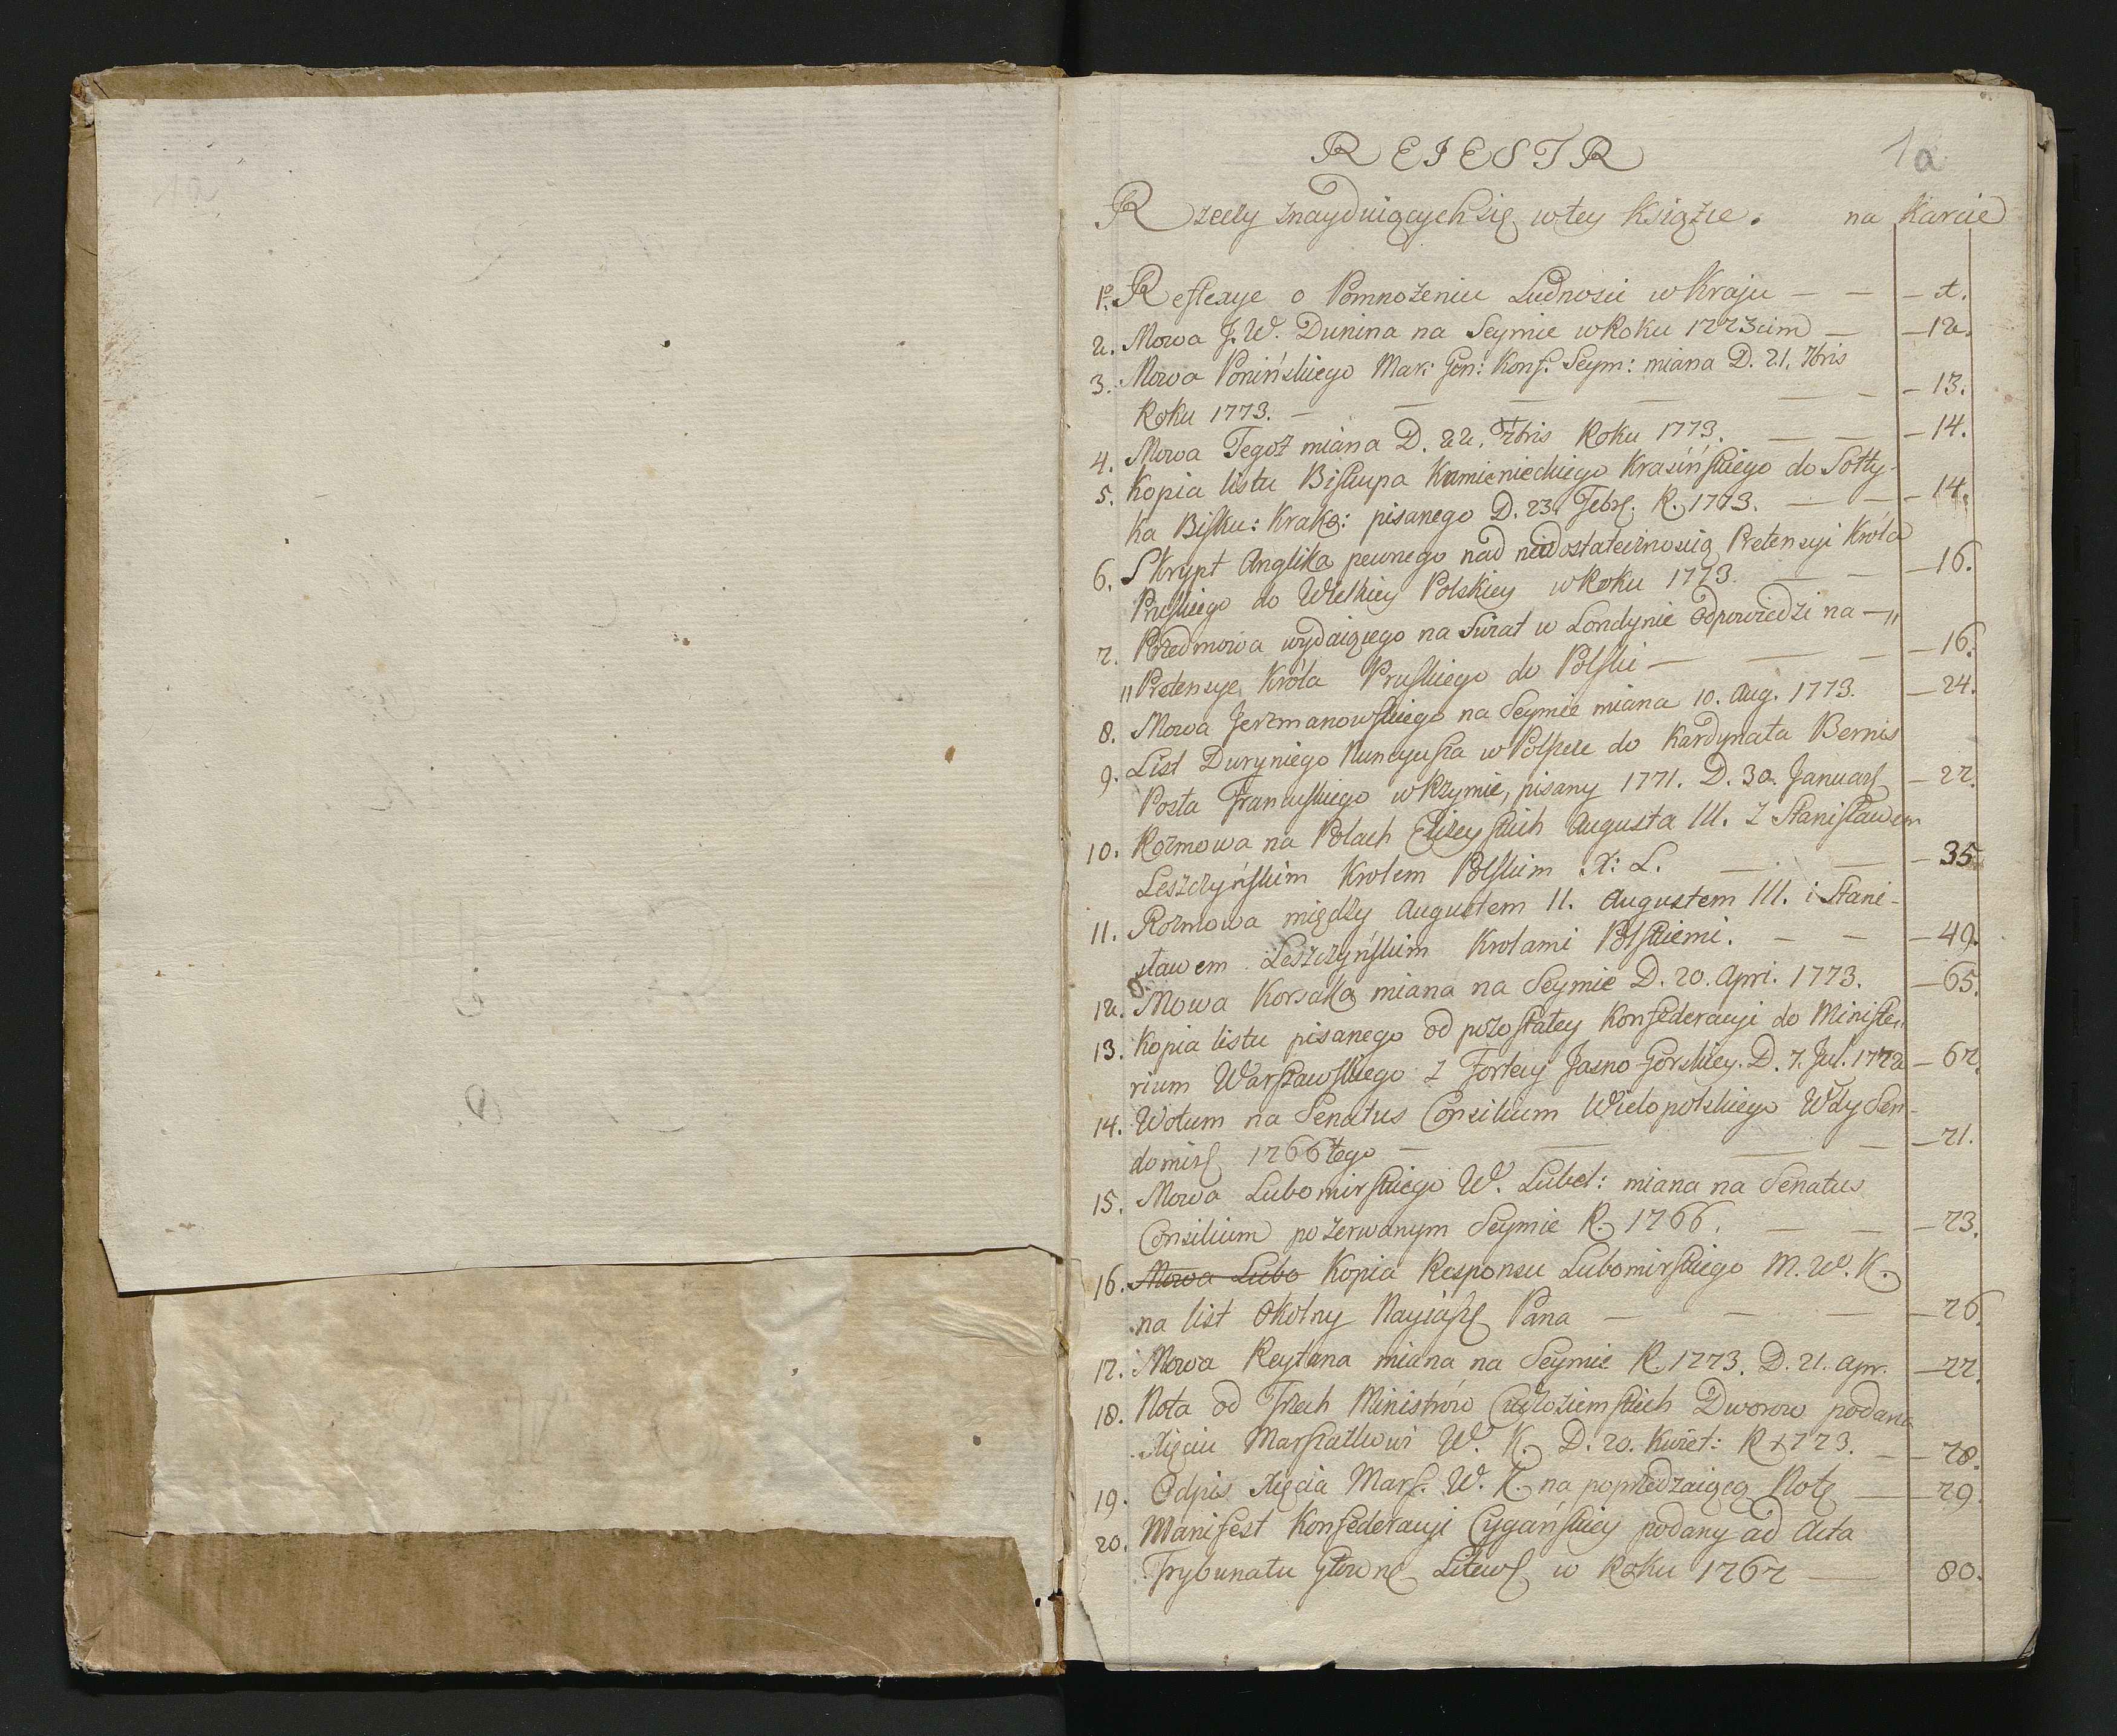 REIESTR
1a
Rzeczy znayduiących się w tey Ksiązce. na Karcie
1º. Reflexye o Pomnożeniu Ludności w Kraju — — — 1.
2. Mowa J. W. Dunina na Seymie w Roku 1773cim — — 12.
3. Mowa Ponińskiego Mar: Gen: Konf: Seym: miana D. 21. 7bris
Roku 1773. — — — — — — — 13.
4. Mowa Tegoż miana D. 22. 7bris Roku 1773. — — — 14.
5. Kopia listu Biskupa Kamienieckiego Krasińskiego do Sołty-
ka Bisku: Krako: pisanego D. 23. Febr. R. 1773. — — — 14.
6. Skrypt Anglika pewnego nad niedostatecznością Pretensyi Króla
Pruskiego do Wielkiey Polskiey w Roku 1773. — — — 16.
7. Przedmowa wydaiącego na Świat w Londynie Odpowiedzi na —"
" Pretensye Króla Pruskiego do Polski — — — — 16.
8. Mowa Jerzmanowskiego na Seymie miana 10. Aug. 1773. — 24.
9. List Duryniego Nuncyusza w Polszcze do Kardynała Bernis
Posła Francuskiego w Rzymie, pisany 1771. D. 30. Januar — 27.
10. Rozmowa na Polach Elizeyskich Augusta III. z Stanisławem
Leszczyńskim Krolem Polskim X: L. — — — 35
11. Rozmowa między Augustem II. Augustem III. i Stani-
sławem Leszczyńskim Krolami Polskiemi. — — — 49.
12. Mowa Korsaka miana na Seymie D. 20. Apri. 1773. — 65.
13. Kopia listu pisanego od pozostałey Konfederacyi do Ministe"
rium Warszawskiego z Fortecy Jasno Górskiey. D. 7. Jul. 1772 — 67.
14. Wotum na Senatus Consilium Wielopolskiego Wdy Sen-
domir 1766tego — — — — — 71.
15. Mowa Lubomirskiego W. Lubel: miana na Senatus
Consilium po zerwanym Seymie R. 1766. — — — 73.
16. Mowa Lubo Kopia Responsu Lubomirskiego M. W. K.
na list Okolny Nayiaśz Pana — — — — 76.
17. Mowa Reytana miana na Seymie R. 1773. D. 21. Apr. — 77.
18. Nota od Trzech Ministrów Cudzoziemskich Dworow podana
Xięciu Marszałkowi W. K. D. 20. Kwiet: R 1773. — — 78.
19. Odpis Xięcia Mars. W. K. na poprzedzaiącą Notę — 79.
20. Manifest Konfederacyi Cygańskiey podany ad Acta
Trybunału Głowne Litews w Roku 1767 — 80.